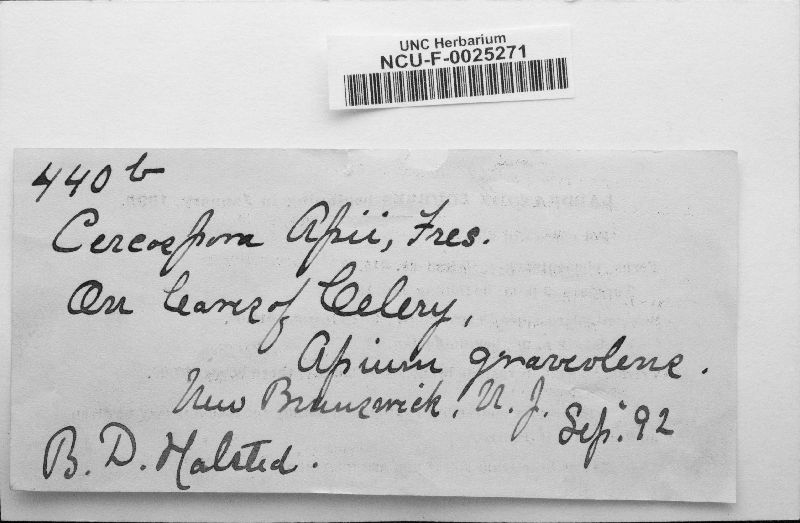 UNC Herbarium
NCU-F-0025271
440b
Cercospora Apii, Fres.
On leaves of Celery,
Apium graveolens.
New Brunswick, N. J.
Sep. 92
B. D. Halsted.